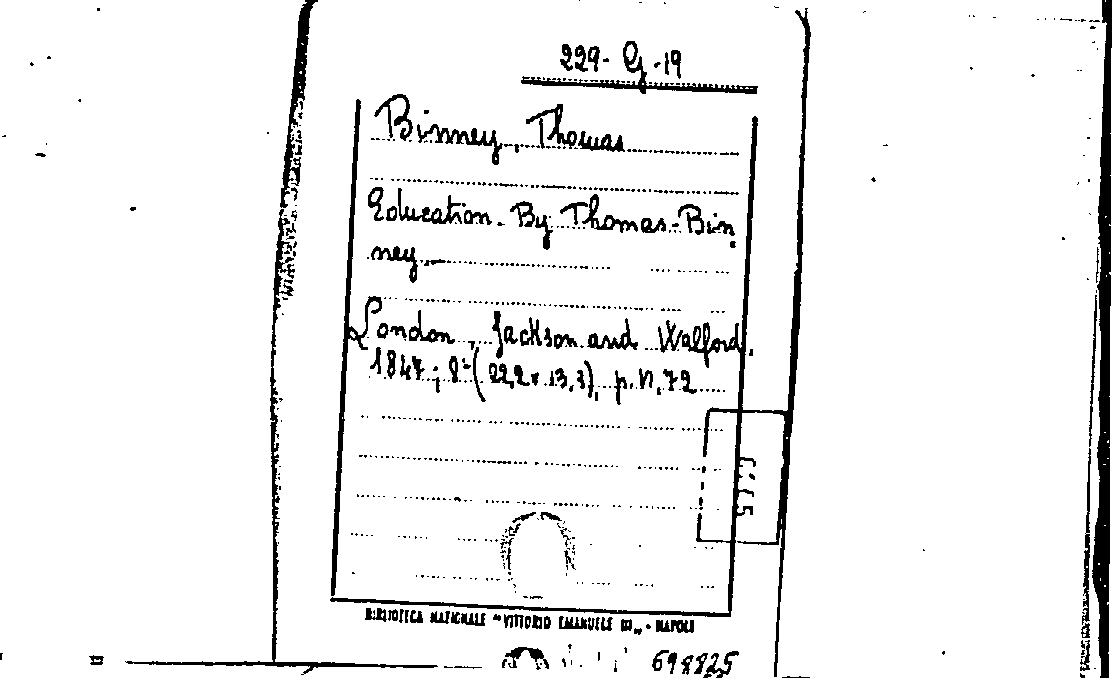 229- G -19
Binney, Thomas
Education. By Thomas Bin
ney.
London, Jackson and Walford.
1847; 8º (22,2 x 13,3), p. N, 72
BIBLIOTECA NAZIONALE "VITTORIO EMANUELE III" - NAPOLI
698825